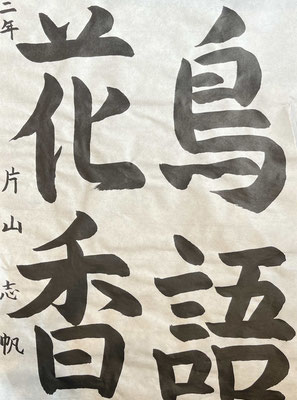 鳥語
花香
二年 片山志帆